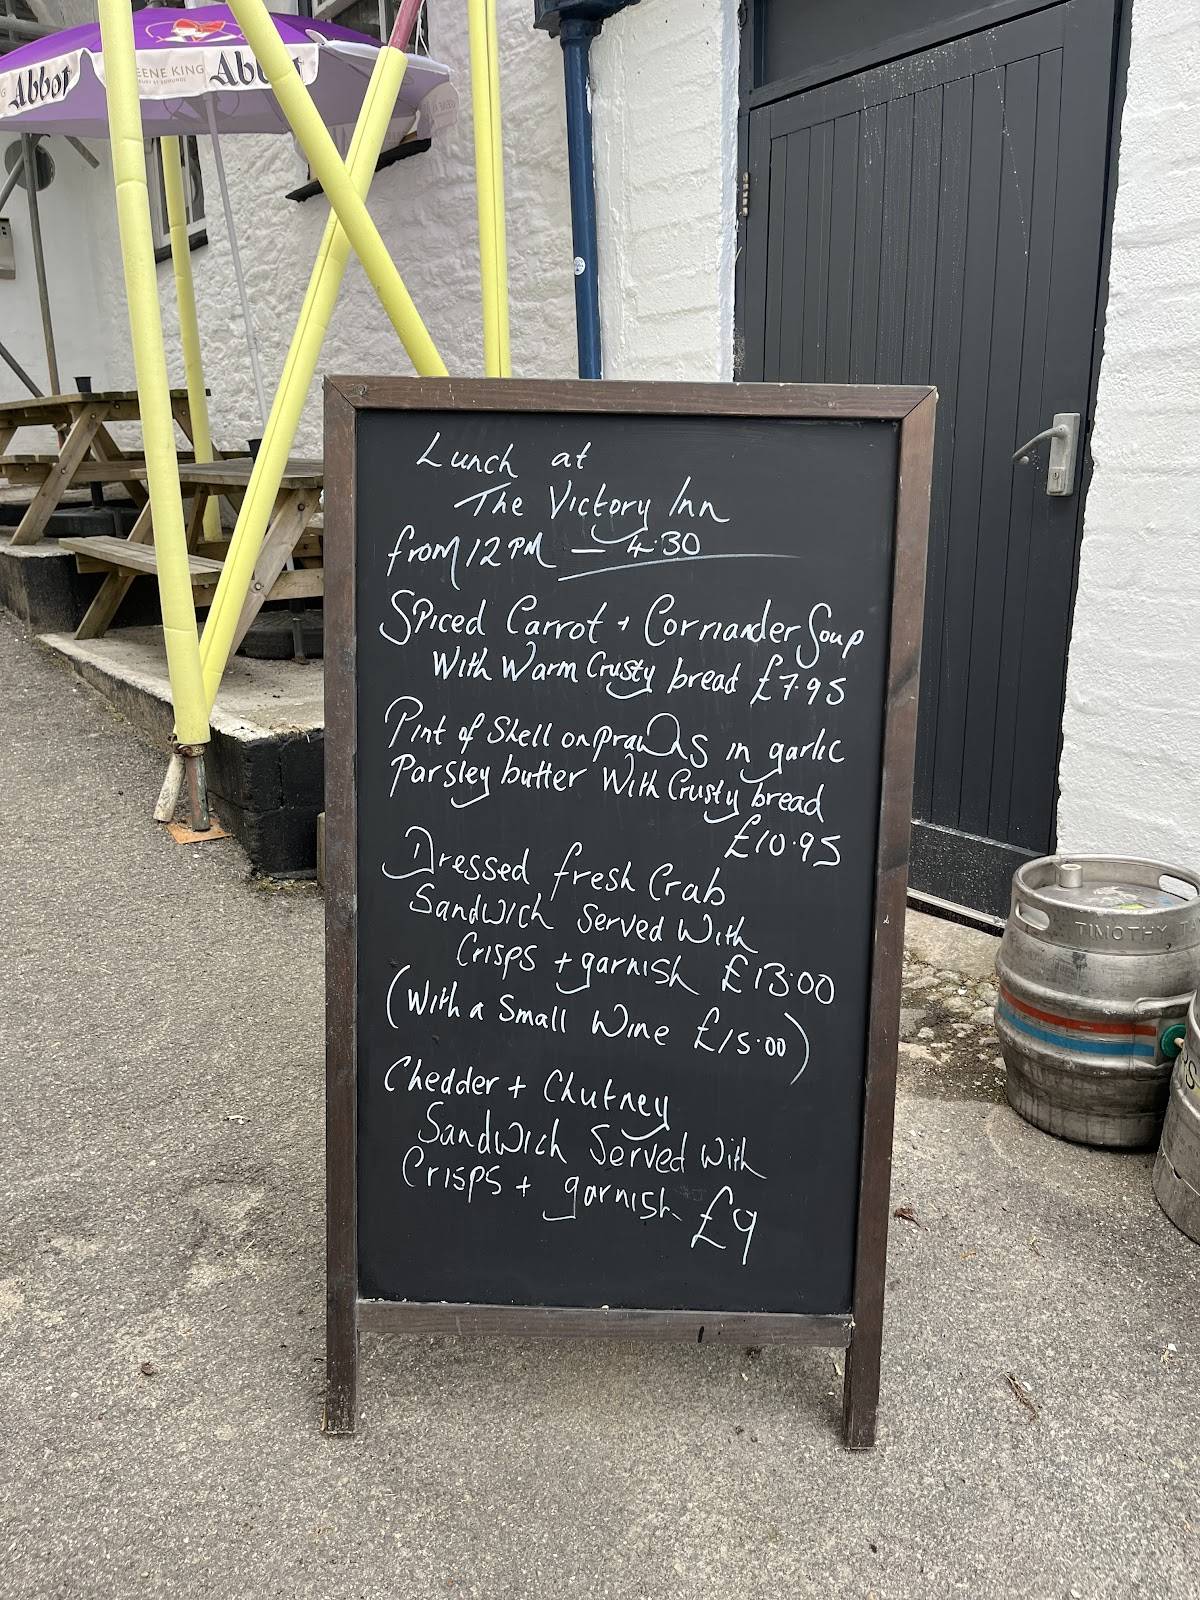 Abbot
GREENE KING
BURY ST EDMUNDS
Abbot
Lunch at
The Victory Inn
from 12PM — 4.30
Spiced Carrot + Corriander Soup
With Warm Crusty bread £7.95
Pint of Shell on prawns in garlic
Parsley butter With Crusty bread
£10.95
Dressed fresh Crab
Sandwich Served With
Crisps + garnish £13.00
(With a Small Wine £15.00)
Chedder + Chutney
Sandwich Served With
Crisps + garnish £9
TIMOTHY T